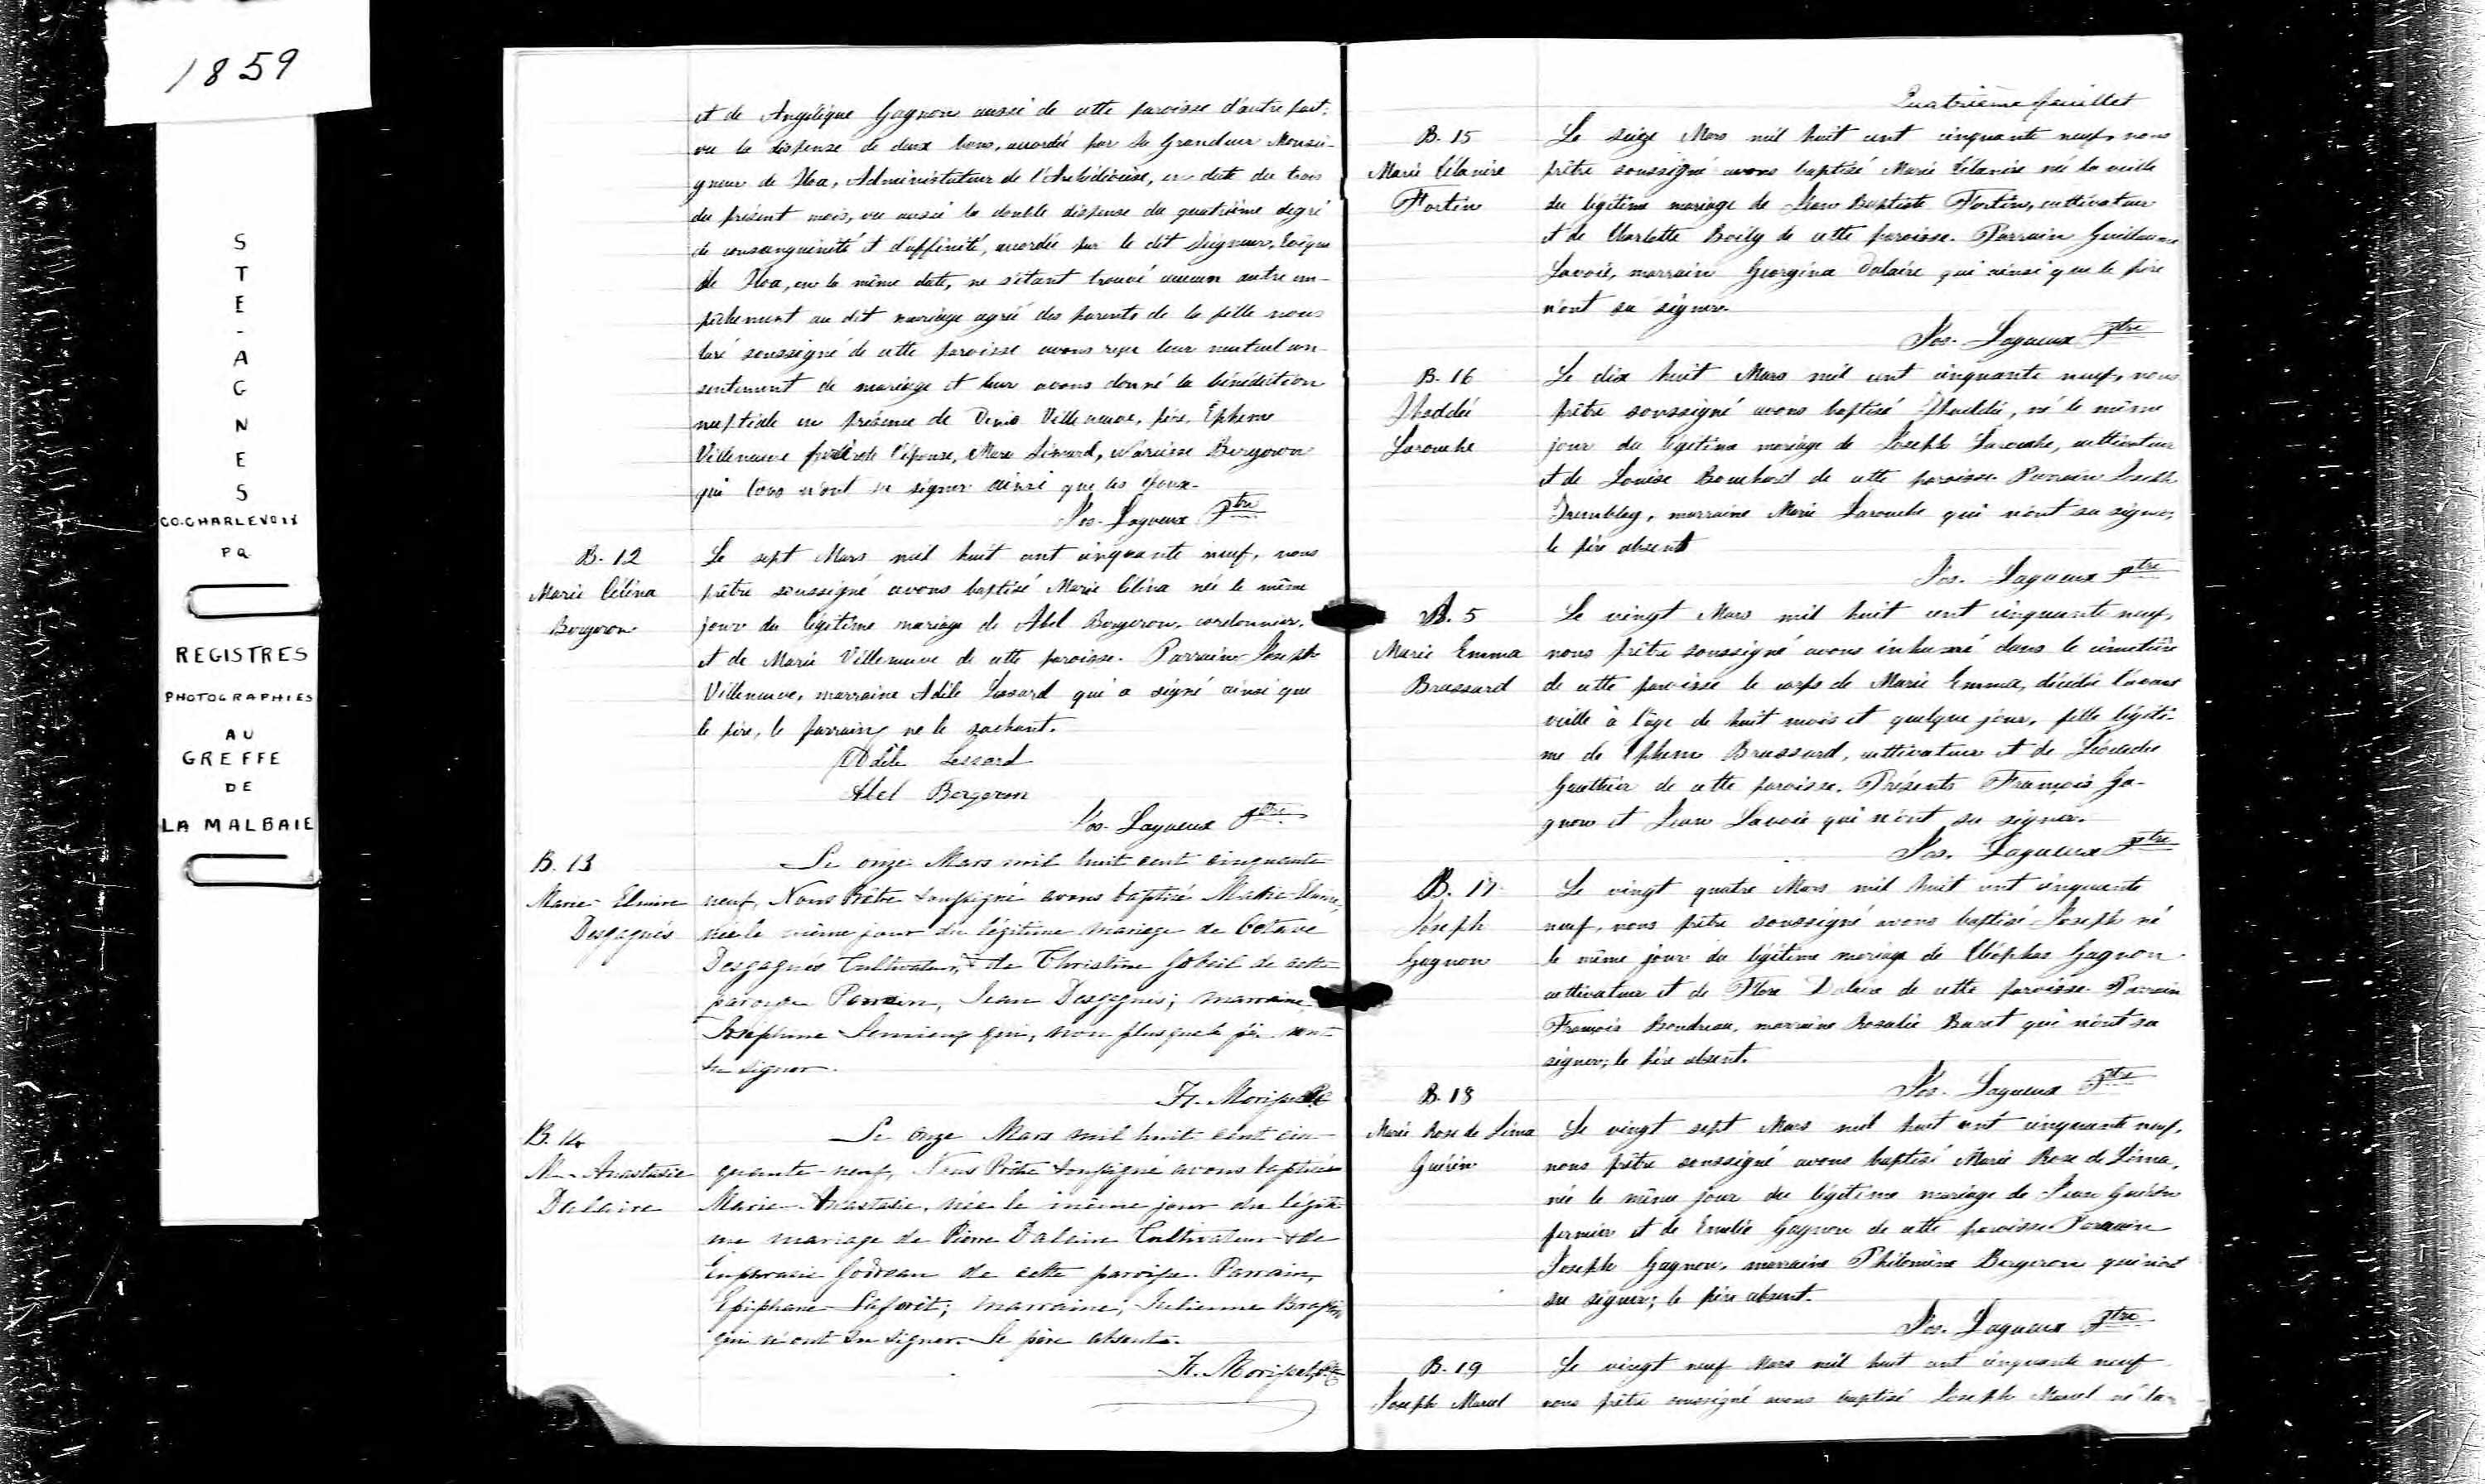 1859
S
T
E
-
A
G
N
E
S
CO. CHARLEVOIX
P Q
REGISTRES
PHOTOGRAPHIES
AU
GREFFE
DE
LA MALBAIE
et de Angélique Gagnon aussi de cette paroisse d'autre part;
vu la dispense de deux bans, accordée par Sa Grandeur Monsei-
gneur de Tloa, Administrateur de l'Archidiocèse, en date du trois
du présent mois, vu aussi la double dispense du quatrième degré
de consanguinité et d'affinité, accordée par le dit Seigneur, Evêque
de Tloa, en la même date, ne s'étant trouvé aucun autre em-
pêchement au dit mariage agréé des parents de la fille nous
Curé soussigné de cette paroisse avons reçu leur mutuel con-
sentement de mariage et leur avons donné la bénédiction
nuptiale en présence de Denis Villeneuve, père, Ephrem
Villeneuve frère de l'épouse, Marc Simard, Narcisse Bergeron
qui tous n'ont su signer ainsi que les époux.
Jos. Lagueux Ptre
B. 12
Marie Célina
Bergeron
Le sept Mars mil huit cent cinquante neuf, nous
prêtre soussigné avons baptisé Marie Célina née le même
jour du légitime mariage de Abel Bergeron, cordonnier,
et de Marie Villeneuve de cette paroisse. Parrain Joseph
Villeneuve, marraine Adèle Lessard qui a signé ainsi que
le père, le parrain ne le sachant.
Adèle Lessard
Abel Bergeron
Jos. Lagueux Ptre
B. 13
Marie-Elmire
Desgagnés
Le onze Mars mil huit cent cinquante
neuf, Nous Prêtre soussigné avons baptisé Marie-Elmire,
née le même jour du légitime mariage de Octave
Desgagnés Cultivateur, & de Christine Gobeil de cette
paroisse Parrain, Jean Desgagnés; marraine,
Joséphine Lemieux qui, non plus que le père n'ont
su signer.
B. 14
M-Anastasie
Dalaire
Le onze Mars mil huit cent cin-
quante-neuf, Nous Prêtre soussigné avons baptisé
Marie-Anastasie, née le même jour du légiti-
me mariage de Pierre Dalaire Cultivateur & de
Euphrasie Godreau de cette paroisse. Parrain,
Epiphane Laforêt; marraine, Julienne
qui n'ont su signer. Le père absent.
Quatrième feuillet
B. 15
Marie Célanire
Fortin
Le seize Mars mil huit cent cinquante neuf, nous
prêtre soussigné avons baptisé Marie Célanire né la veille
du légitime mariage de Jean Baptiste Fortin, cultivateur
et de Charlotte Boily de cette paroisse. Parrain Guillaume
Lavoie, marraine Georgina Dalaire qui ainsi que le père
n'ont su signer.
Jos. Lagueux Ptre
B. 16
Thaddée
Larouche
Le dix huit Mars mil cent cinquante neuf, nous
prêtre soussigné avons baptisé Thaddée, né le même
jour du légitime mariage de Joseph Larouche, cultivateur
et de Louise Bouchard de cette paroisse. Parrain Joseph
Tremblay, marraine Marie Larouche qui n'ont su signer,
le père absent
Jos. Lagueux Ptre
S. 5
Marie Emma
Brassard
Le vingt Mars mil huit cent cinquante neuf,
nous prêtre soussigné avons inhumé dans le cimetière
de cette paroisse le corps de Marie Emma, décédée l'avant
veille à l'âge de huit mois et quelque jour, fille légiti-
me de Ephrem Brassard, cultivateur et de Léocadie
Gauthier de cette paroisse. Présents François Ga-
gnon et Jean Lavoie qui n'ont su signer.
Jos. Lagueux Ptre
B. 17
Joseph
Gagnon
Le vingt quatre Mars mil huit cent cinquante
neuf, nous prêtre soussigné avons baptisé Joseph né
le même jour du légitime mariage de Cléophas Gagnon
cultivateur et de Flore Dalaire de cette paroisse. Parrain
François Boudreau, marraine Rosalie qui n'ont su
signer; le père absent.
Jos. Lagueux Ptre
B. 18
Marie Rose de Lima
Guérin
Le vingt sept Mars mil huit cent cinquante neuf,
nous prêtre soussigné avons baptisé Marie Rose de Lima,
née le même jour du légitime mariage de Jean Guérin
fermier et de Emélie Gagnon de cette paroisse Parrain
Joseph Gagnon, marraine Philomène Bergeron qui n'ont
su signer; le père absent.
Jos. Lagueux Ptre
B. 19
Joseph Marcel
Le vingt neuf Mars mil huit cent cinquante neuf
nous prêtre soussigné avons baptisé Joseph Marcel né la